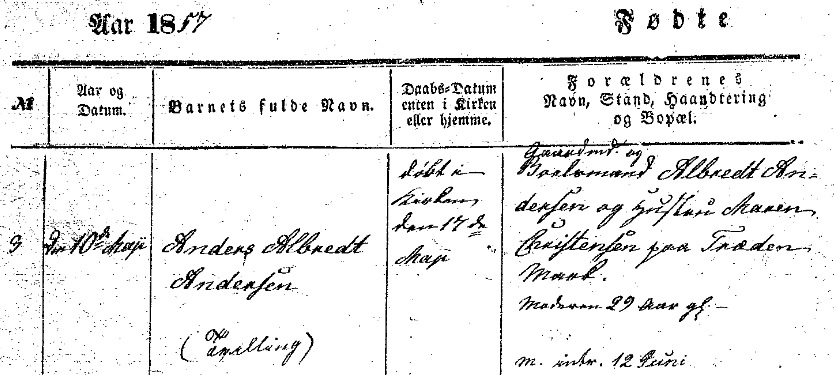 Aar 1857
Fødte
№
Aar og
Datum.
Barnets fulde Navn.
Daabs-Datum
enten i Kirken
eller hjemme.
Forældrenes
Navn, Stand, Haandtering
og Bopæl.
9
den 10de Maji
Anders Albredt
Andersen
(Tvilling)
døbt i
Kirken
den 17de
Maji
Gaardmd. og
Boelsmand Albredt An-
dersen og Hustru Maren
Christensen paa Træden
Mark.
Moderen 29 Aar gl.
m. intr. 12 Juni